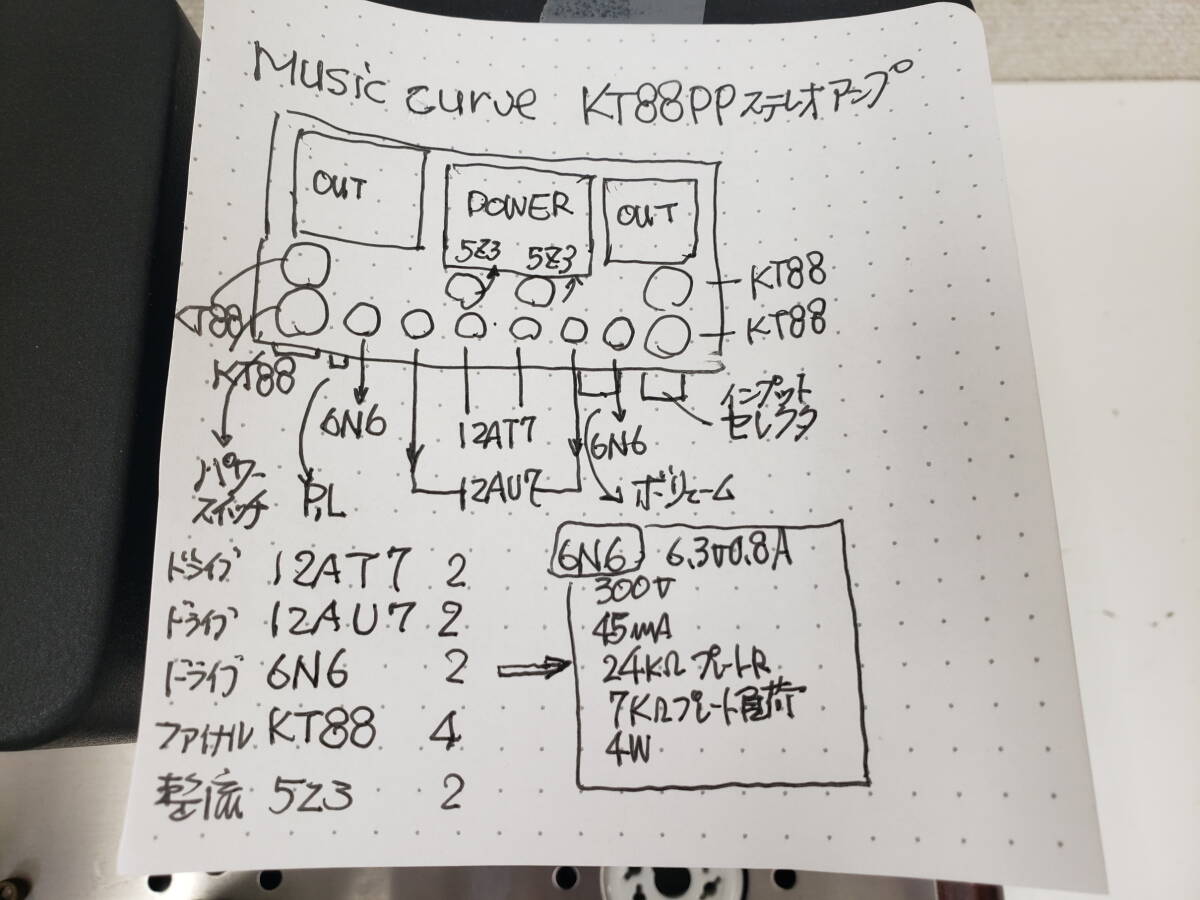 Music curve KT88PPステレオアンプ
OUT
POWER
OUT
5Z3 5Z3
KT88
KT88
KT88
KT88
6N6
12AT7
12AU7
6N6
インプット
セレクタ
パワー
スイッチ
P.L
ボリューム
ドライブ 12AT7 2
ドライブ 12AU7 2
ドライブ 6N6 2
ファイナル KT88 4
整流 5Z3 2
6N6 6.3V0.8A
300V
45mA
24KΩプレートR
7KΩプレート負荷
4W